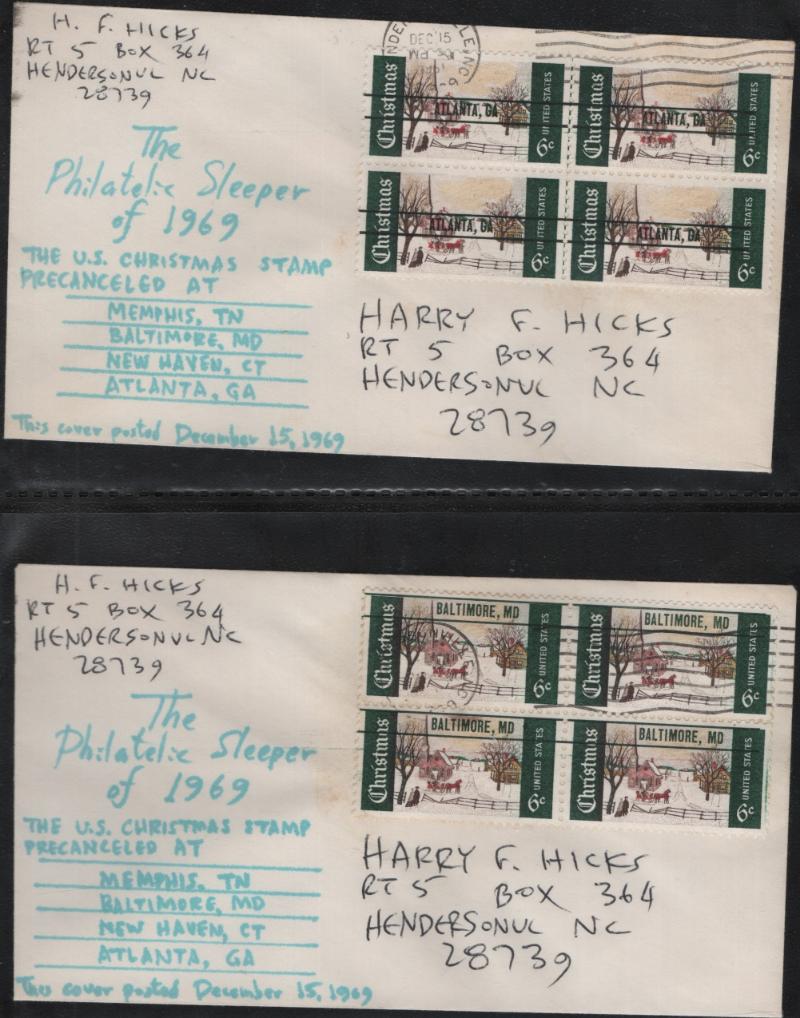 H. F. HICKS
RT 5 BOX 364
HENDERSONVL NC
28739
DEC 15
PM
The
Philatelic Sleeper
of 1969
THE U.S. CHRISTMAS STAMP
PRECANCELED AT
MEMPHIS, TN
BALTIMORE, MD
NEW HAVEN, CT
ATLANTA, GA
This cover posted December 15, 1969
Christmas ATLANTA, GA 6c UNITED STATES
Christmas ATLANTA, GA 6c UNITED STATES
Christmas ATLANTA, GA 6c UNITED STATES
Christmas ATLANTA, GA 6c UNITED STATES
HARRY F. HICKS
RT 5 BOX 364
HENDERSONVL NC
28739
H. F. HICKS
RT 5 BOX 364
HENDERSONVL NC
28739
The
Philatelic Sleeper
of 1969
THE U.S. CHRISTMAS STAMP
PRECANCELED AT
MEMPHIS, TN
BALTIMORE, MD
NEW HAVEN, CT
ATLANTA, GA
This cover posted December 15, 1969
Christmas BALTIMORE, MD 6c UNITED STATES
Christmas BALTIMORE, MD 6c UNITED STATES
Christmas BALTIMORE, MD 6c UNITED STATES
Christmas BALTIMORE, MD 6c UNITED STATES
HARRY F. HICKS
RT 5 BOX 364
HENDERSONVL NC
28739